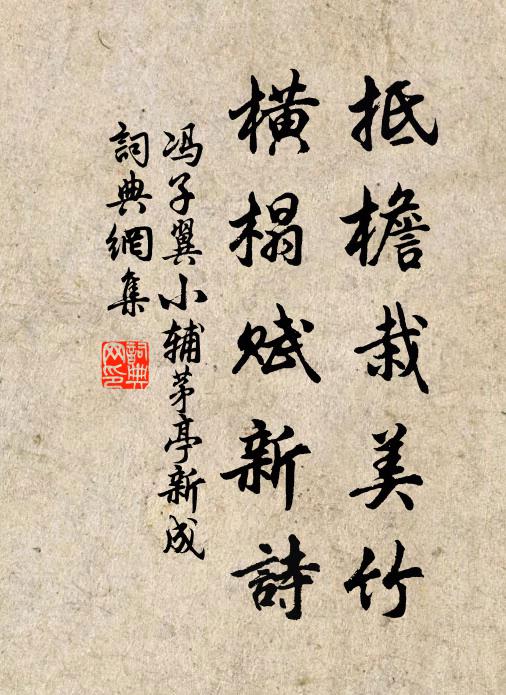 抵檐栽美竹
横榻赋新詩
冯子翼小辅茅亭新成
詞典網集
詞典网印